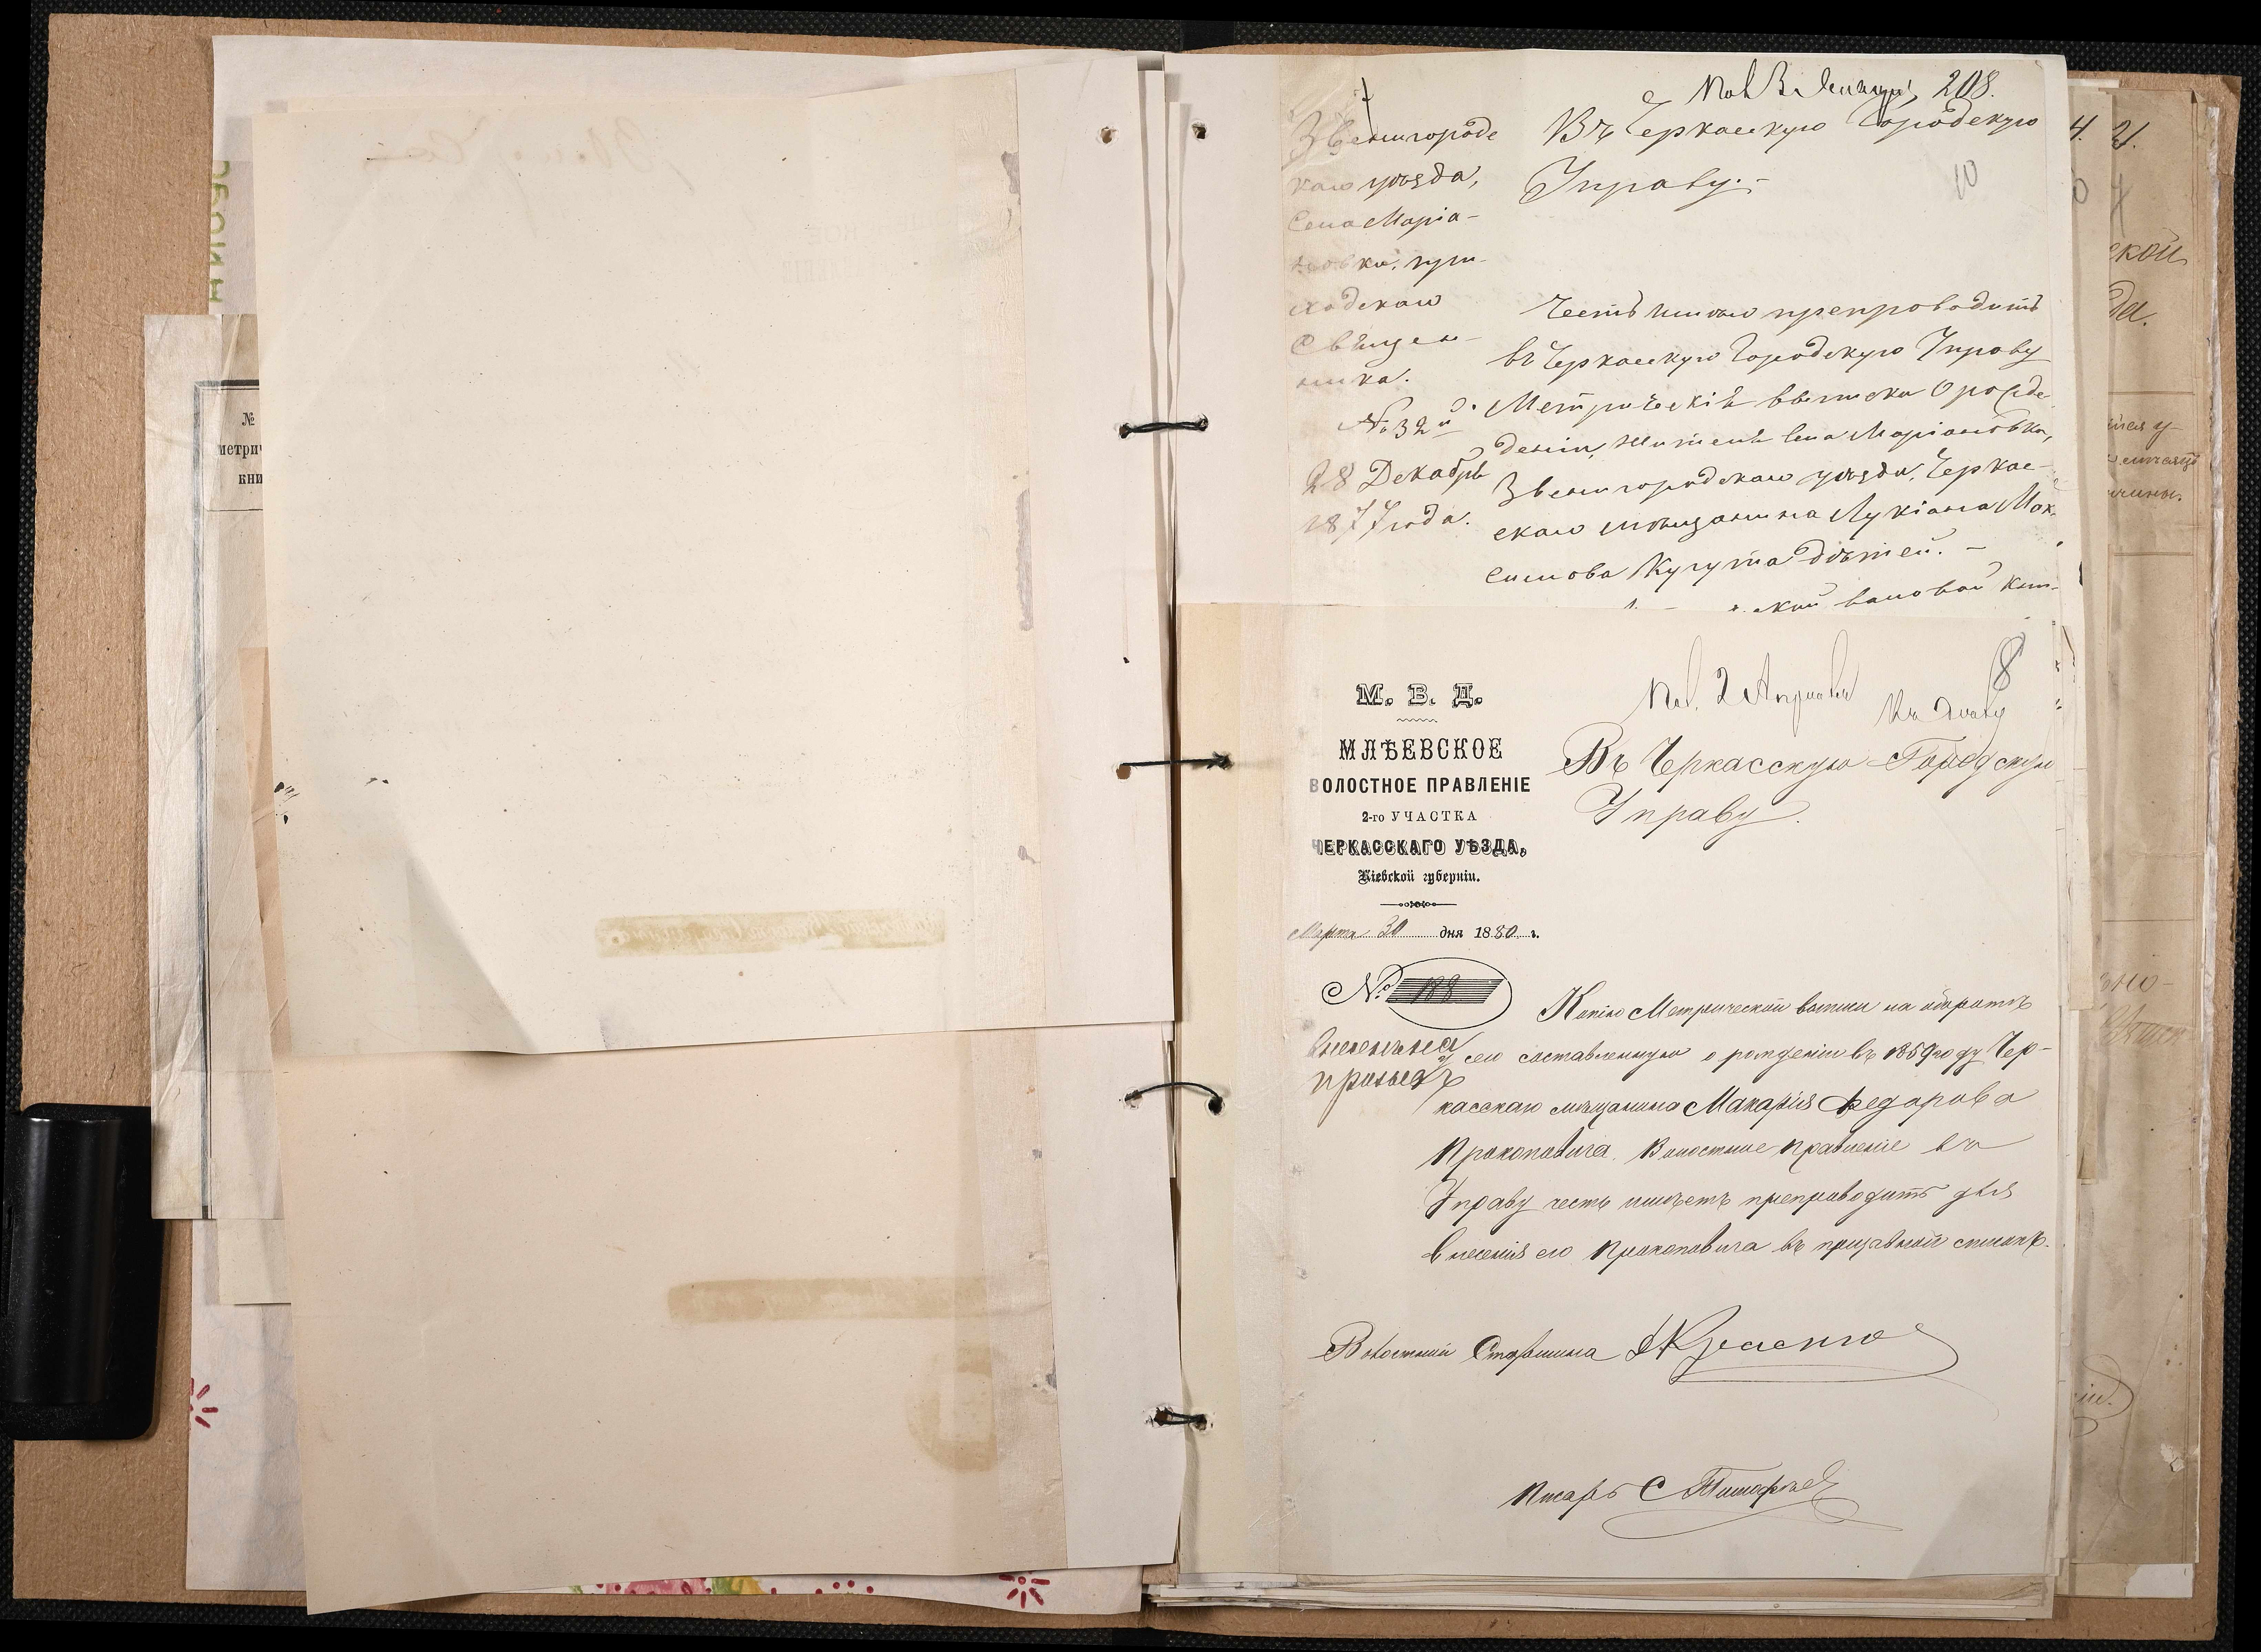 №
метрич
кни
208.
Звенигород
каго уѣзда,
Села Маріа-
новки, при-
ходскаго
Священ-
ника.
№ 32й
28 Декабря
1877 года.
Въ Черкасскую Городскую
Управу.-
10
Честь имѣю препроводить
въ Черкасскую Городскую Управу
Метрическія выписки о рожде
деніи, жителя села Маріановки,
Звенигородскаго уѣзда, Черкас-
скаго мѣщанина Лукіана Мак-
симова Кугута дѣтей. -
М. В. Д.
МЛѢЕВСКОЕ
ВОЛОСТНОЕ ПРАВЛЕНІЕ
2-го УЧАСТКА
ЧЕРКАССКАГО УѢЗДА,
Кіевской губерніи.
Марта 30 дня 1880 г.
№ 188
8
Пол. 2 Апрѣля
Къ дѣлу
Въ Черкасскую Городскую
Управу.
Копію Метрической выписи на оборотѣ
сего составленную о рожденіи въ 1859 году Чер-
касскаго мѣщанина Макарія Федорова
Прокоповича, Волостное Правленіе въ
Управу честь имѣетъ препроводить для
внесенія его Прокоповича въ призывной списокъ.
Волостной Старшина
Писарь С Тимофѣев
4.
21.
ской